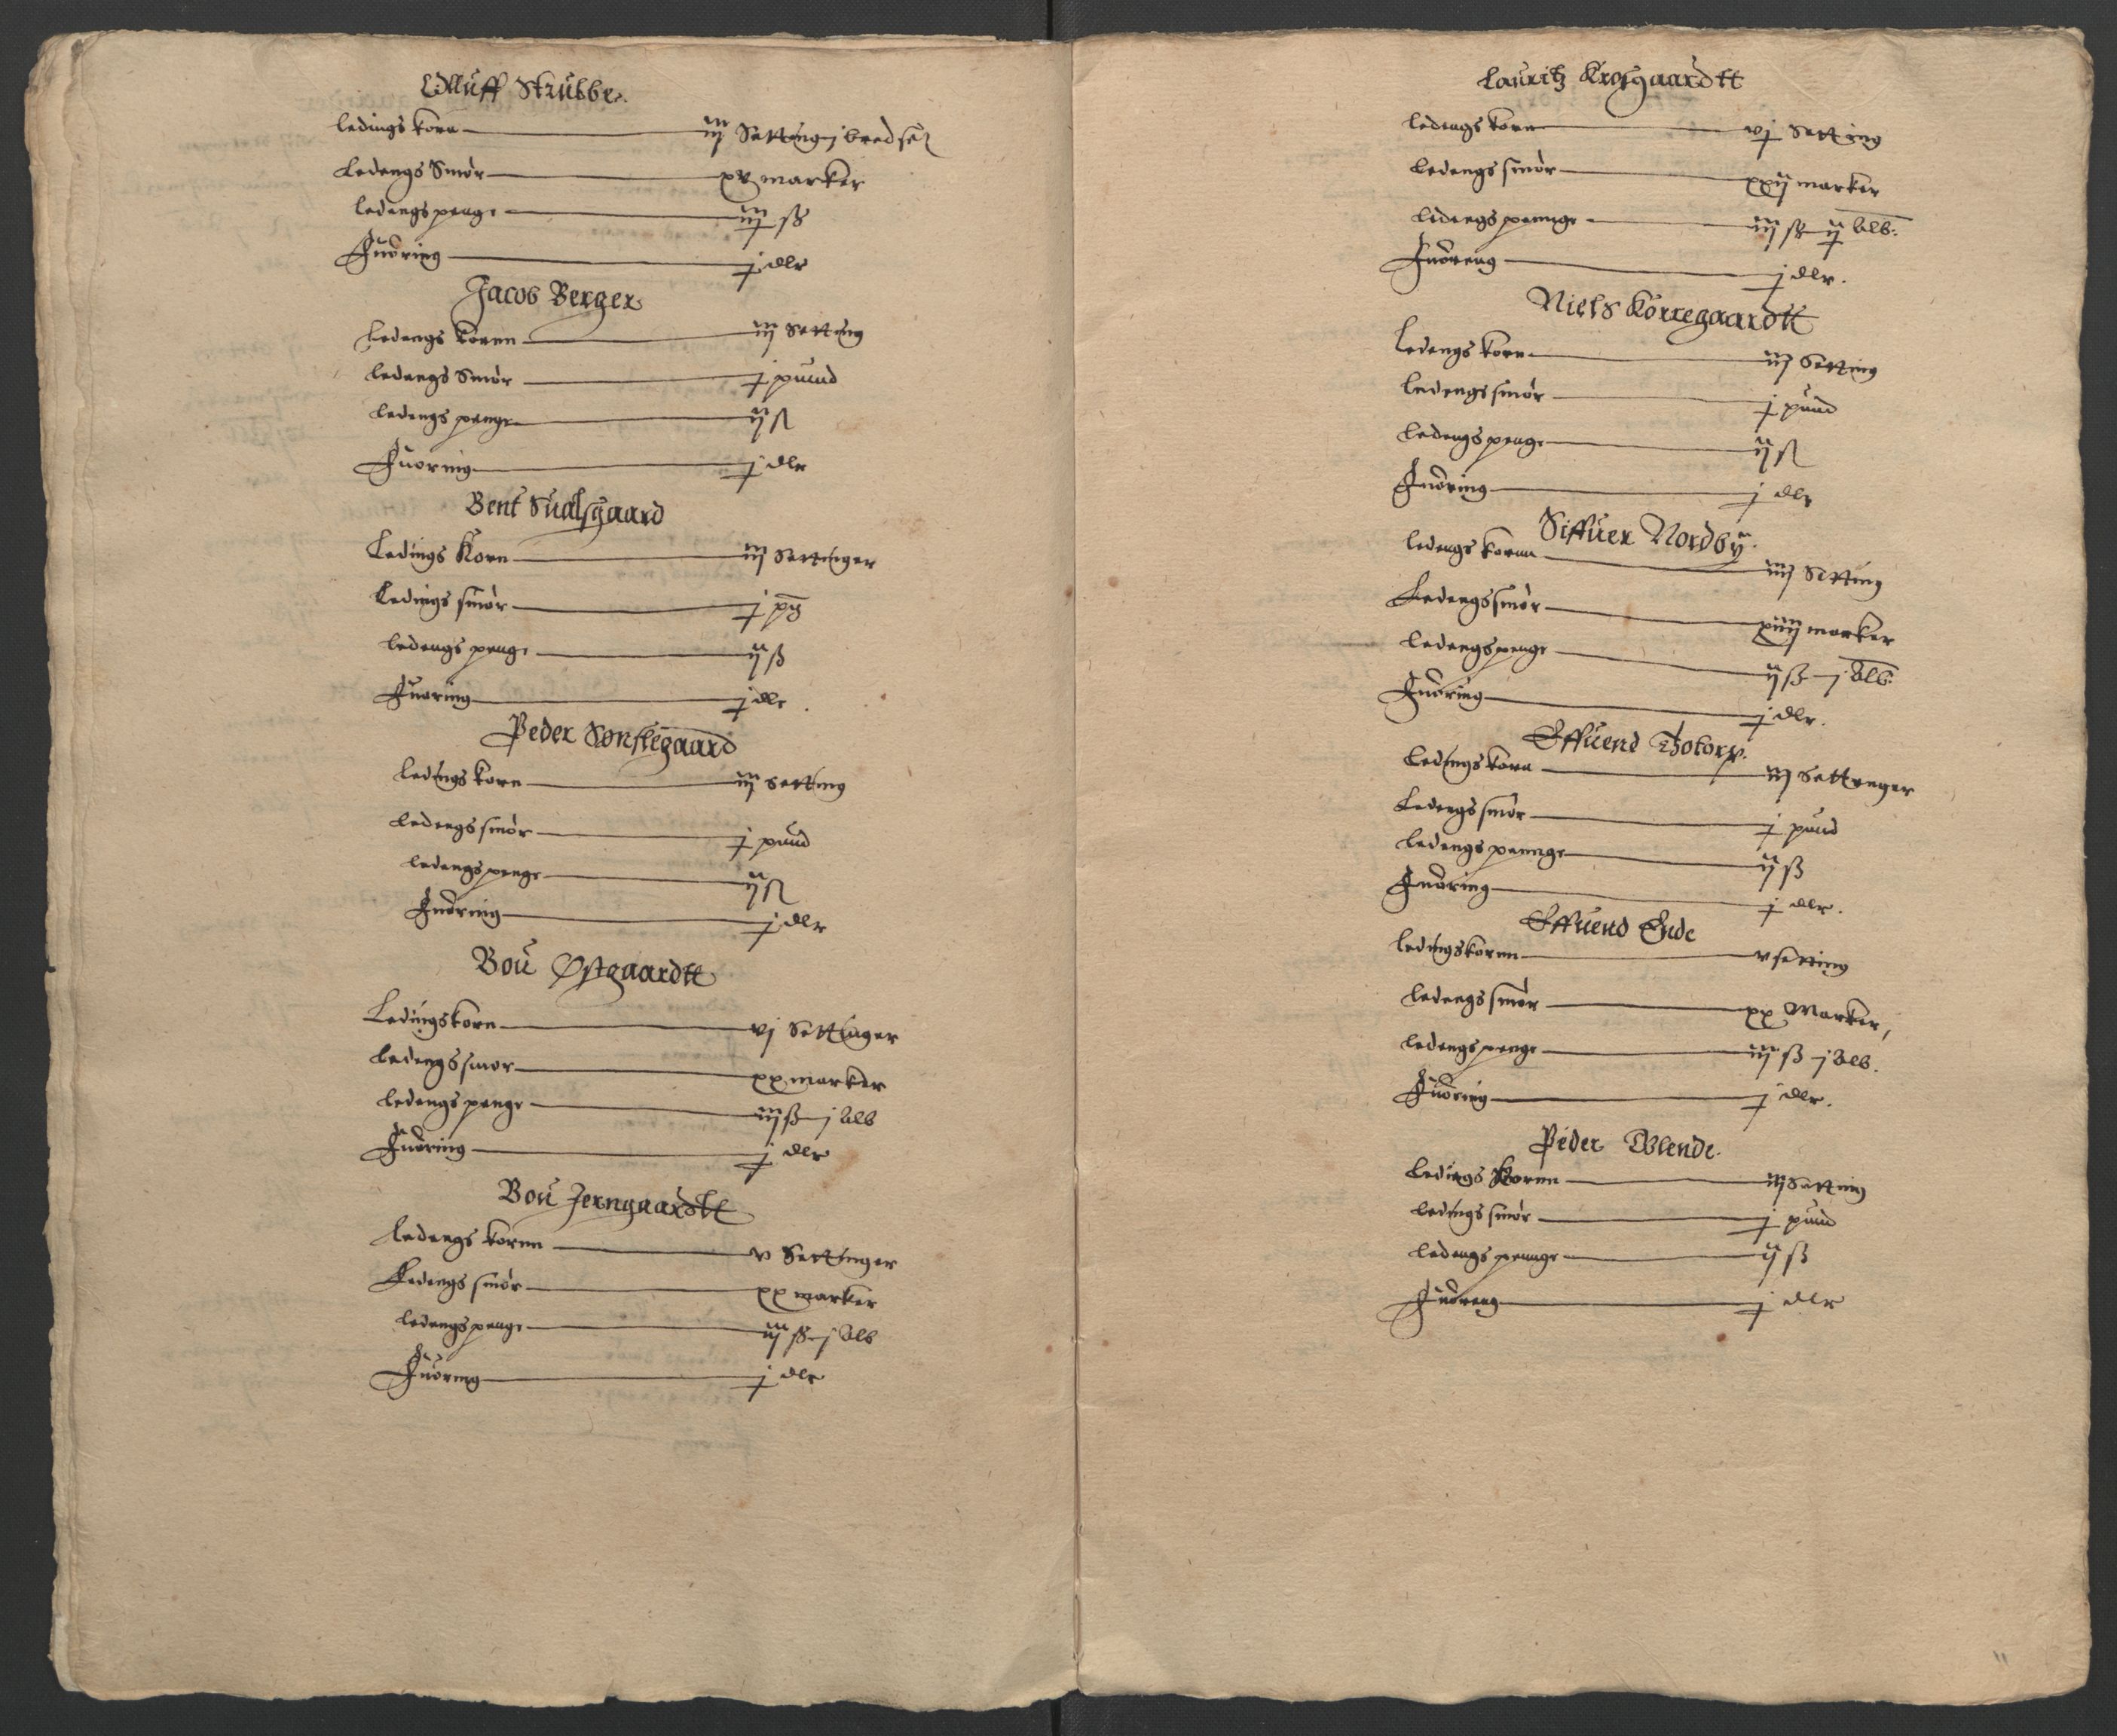 Olluff Strubbe.
ledings korn — iiij Setting j bredsel
Ledengs Smór — xv marker
ledengs penge — iiij sß
Fuóring — j dlr
Jacob Berger
ledengs kornn — iij Setting
ledengs Smór — j puund
ledengs penge — ij ß
Fuoring — j dlr
Bent Sualsgaard
Ledings Korn — iij Settinger
Ledings smór — j pd
ledengs penge — ij ß
Fuoring — j dlr
Peder Sønstegaard
ledings korn — iij Setting
ledengs smór — j puund
ledengs penge — ij ß
Fuóring — j dlr
Bou Østgaardtt
Ledingskorn — vj Settinger
ledengs smor — xx marker
ledengs penge — iij ß j alb
Fuóring — j dlr
Bou Jerngaardtt
ledengs kornn — v Settinger
Ledengs smór — xx marker
ledengs penge — iij ß j alb
Fuóring — j dlr
Lauritz Krosgaardtt
ledengs korn — vj Setting
ledengs smór — xxij marker
ledengs pennge — iij ß ij alb:
Fuóreng — j dlr.
Niels Kórregaardtt
Ledengs korn — iij Setting
ledengs smór — j puund
ledengs penge — ij ß
Fuóring — j dlr
Siffuer Nordbÿ.
ledengs kornn — iiij Setting
Ledengs smór — xiiij marker
ledengs penge — ij ß j alb.
Fuóring — j dlr.
Effuend Totorp.
Ledings korn — iij Settenger
Ledengs smór — j puund
ledengs pennge — ij ß
Fuóring — j dlr.
Effuend Ende
ledingskornn — v setting
ledengs smór — xx Marker,
ledengs penge — iij ß j alb.
Fuóring — j dlr.
Peder Blende.
ledings kornn — iij Setting
ledings smór — j puund
ledengs pennge — ij ß
Fuóreng — j dlr